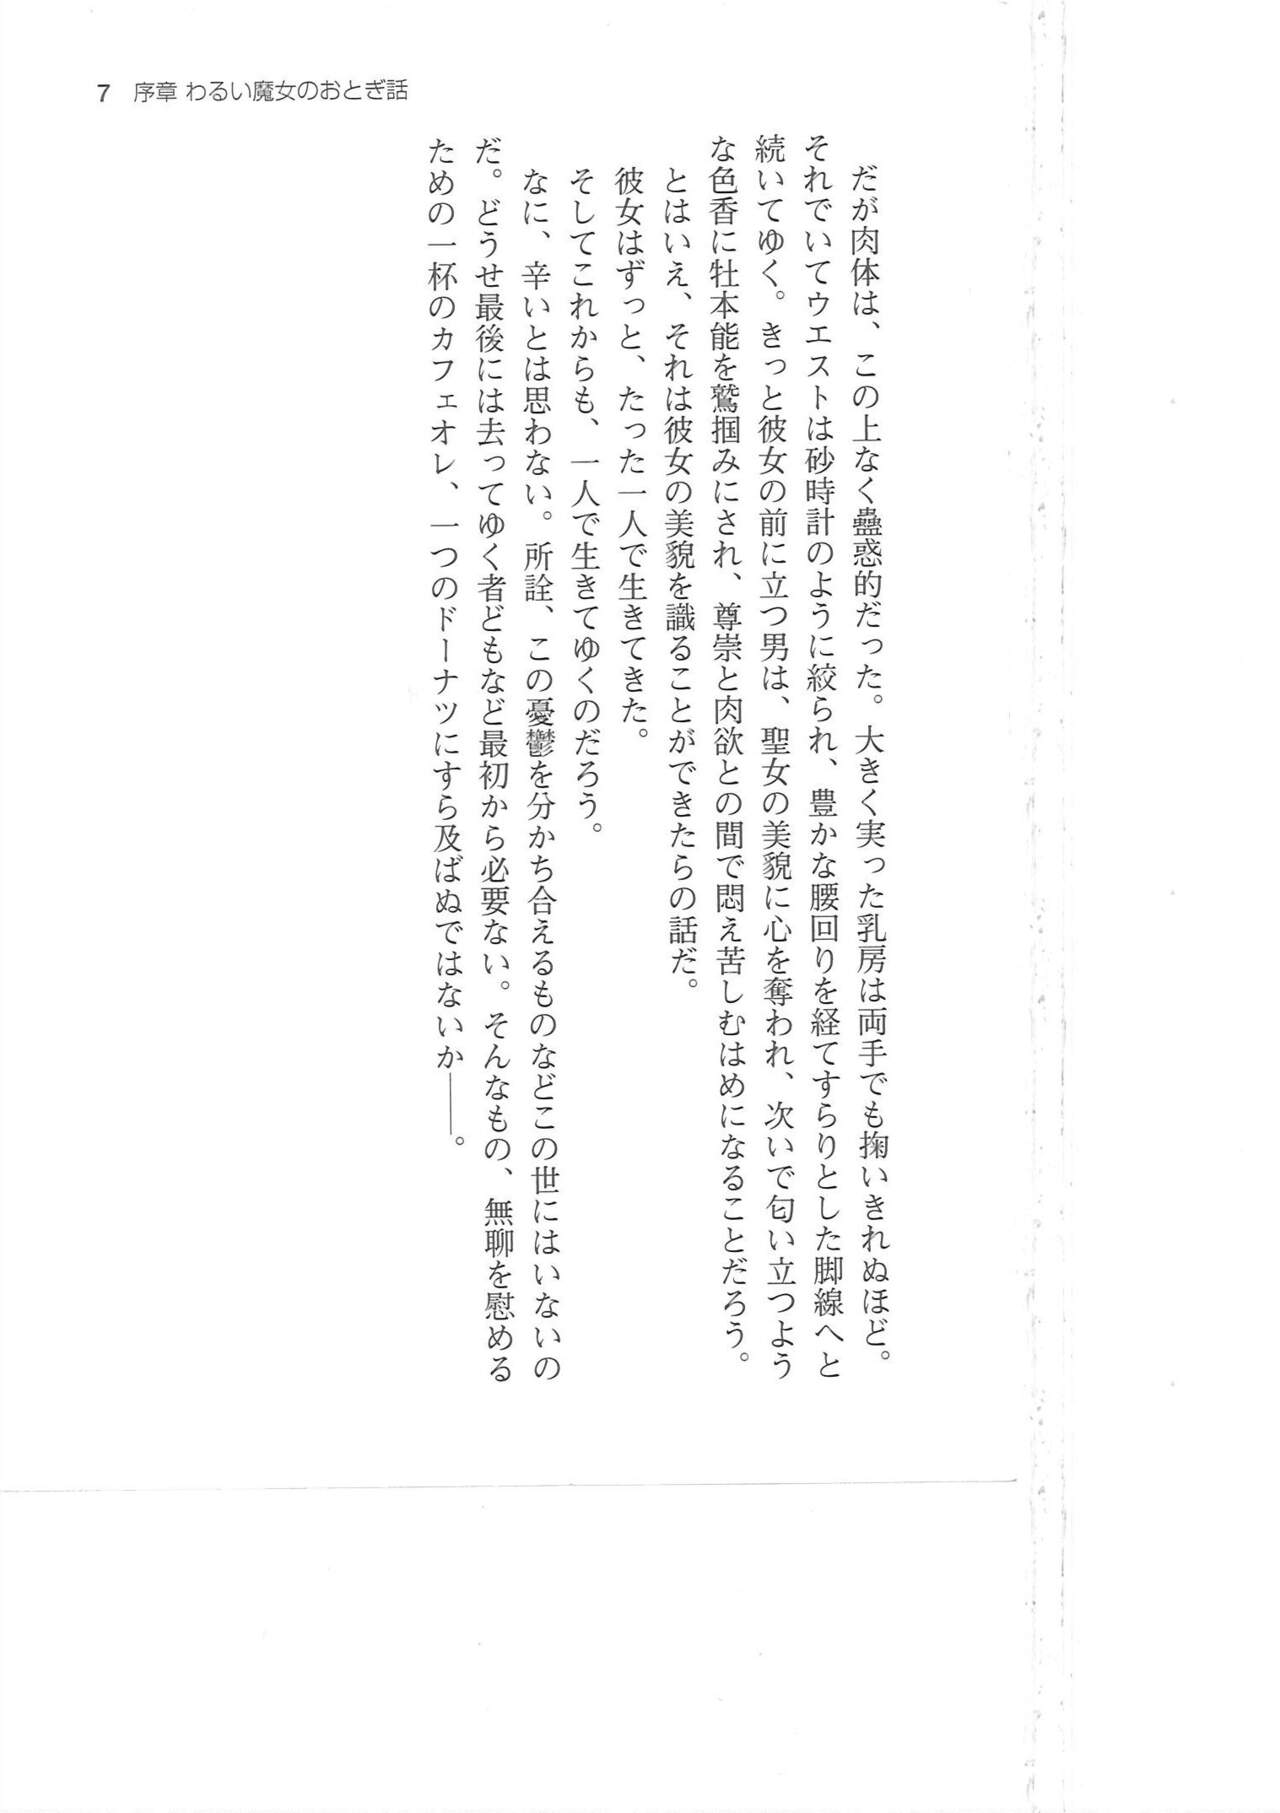 7 序章 わるい魔女のおとぎ話
だが肉体は、この上なく蠱惑的だった。大きく実った乳房は両手でも掬いきれぬほど。
それでいてウエストは砂時計のように絞られ、豊かな腰回りを経てすらりとした脚線へと
続いてゆく。きっと彼女の前に立つ男は、聖女の美貌に心を奪われ、次いで匂い立つよう
な色香に牡本能を鷲掴みにされ、尊崇と肉欲との間で悶え苦しむはめになることだろう。
とはいえ、それは彼女の美貌を識ることができたらの話だ。
彼女はずっと、たった一人で生きてきた。
そしてこれからも、一人で生きてゆくのだろう。
なに、辛いとは思わない。所詮、この憂鬱を分かち合えるものなどこの世にはいないの
だ。どうせ最後には去ってゆく者どもなど最初から必要ない。そんなもの、無聊を慰める
ための一杯のカフェオレ、一つのドーナツにすら及ばぬではないか――。